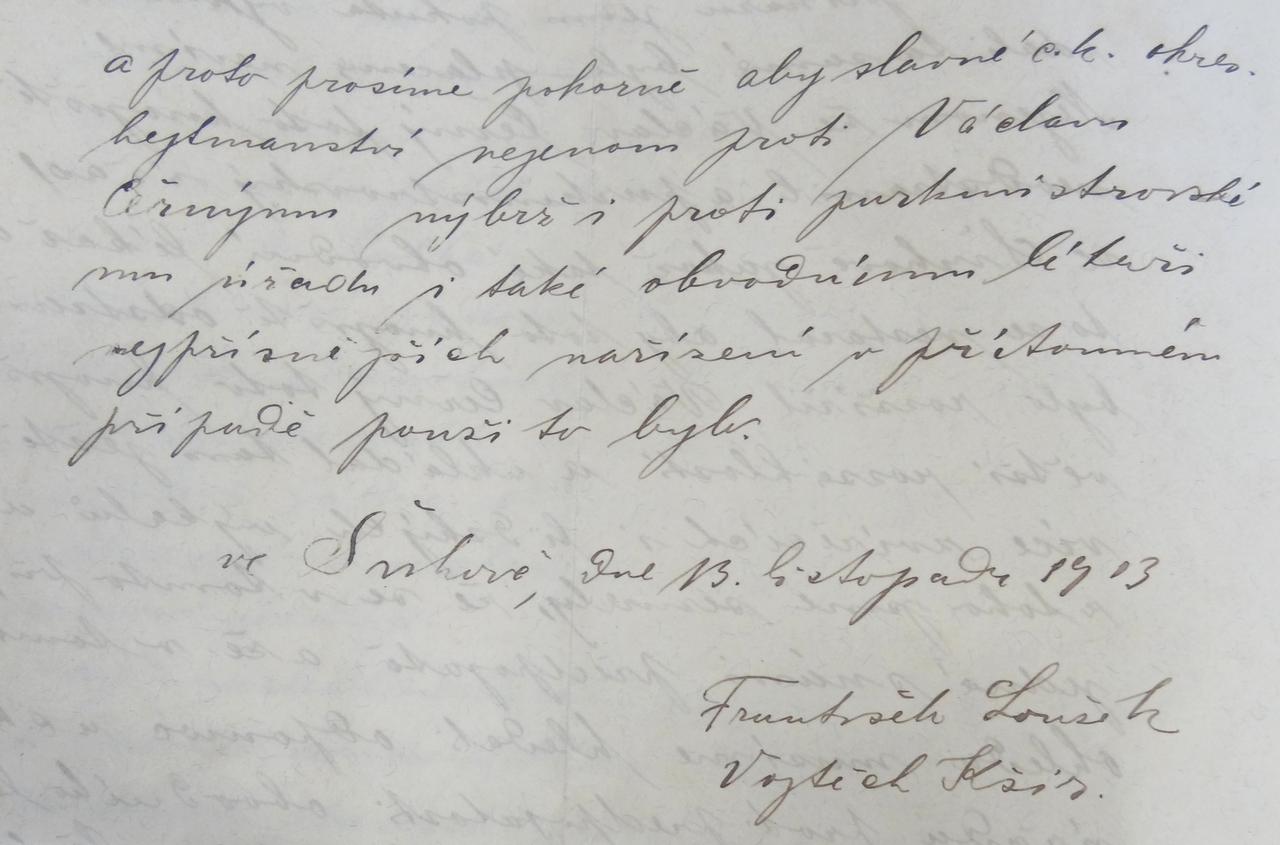 a proto prosíme pokorně aby slavné c.k. okres.
hejtmanství nejenom proti Václavu
Černýmu nýbrž i proti purkmistrovské
mu úřadu i také obvodnímu lékaři
nejpřísnějších nařízení v přítomném
případě použito bylo.
ve dne 13. listopadu 1913
František Loušek
Vojtěch Kšír.